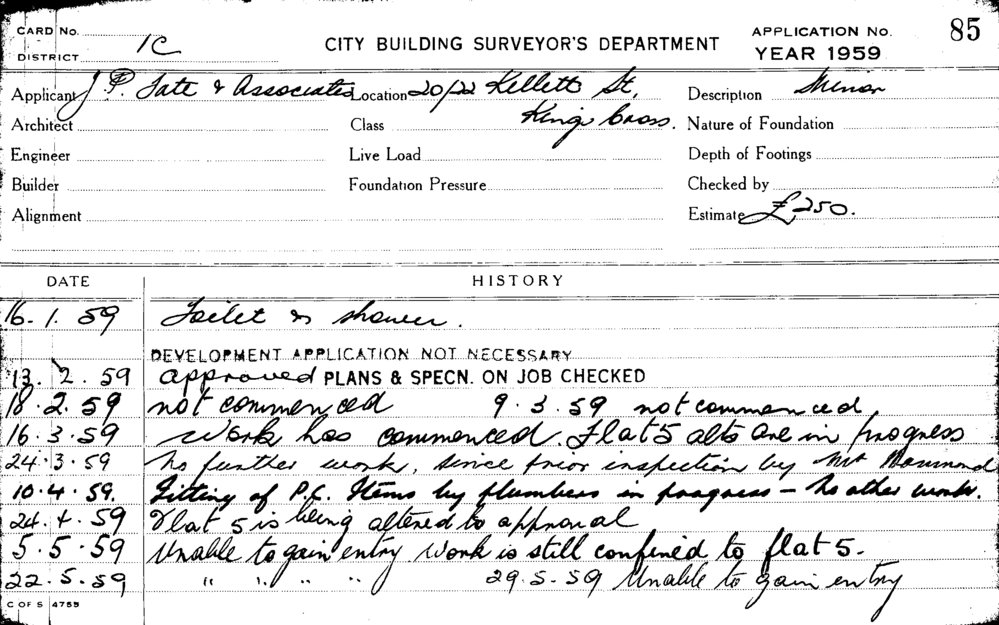 CARD No.
1C
DISTRICT
CITY BUILDING SURVEYOR'S DEPARTMENT
APPLICATION No. 85
YEAR 1959
Applicant J. P. Tate & Associates Location 20/22 Kellett St, Description Minor
Architect Class Kings Cross. Nature of Foundation
Engineer Live Load Depth of Footings
Builder Foundation Pressure Checked by
Alignment Estimate £250.
DATE HISTORY
16. 1. 59 Toilet & shower.
DEVELOPMENT APPLICATION NOT NECESSARY
13. 2. 59 approved PLANS & SPECN. ON JOB CHECKED
18.2.59 not commenced 9.3.59 not commenced
16.3.59 Work has commenced. Flat 5 alts are in progress
24.3.59 No further work, since prior inspection by Mr
10.4.59. Fitting of P.C. Items by plumbers in progress - No other work.
24.4.59 Flat 5 is being altered to approval
5.5.59 Unable to gain entry. Work is still confined to flat 5.
22.5.59 " " " " 29.5.59 Unable to gain entry
C OF S 4755